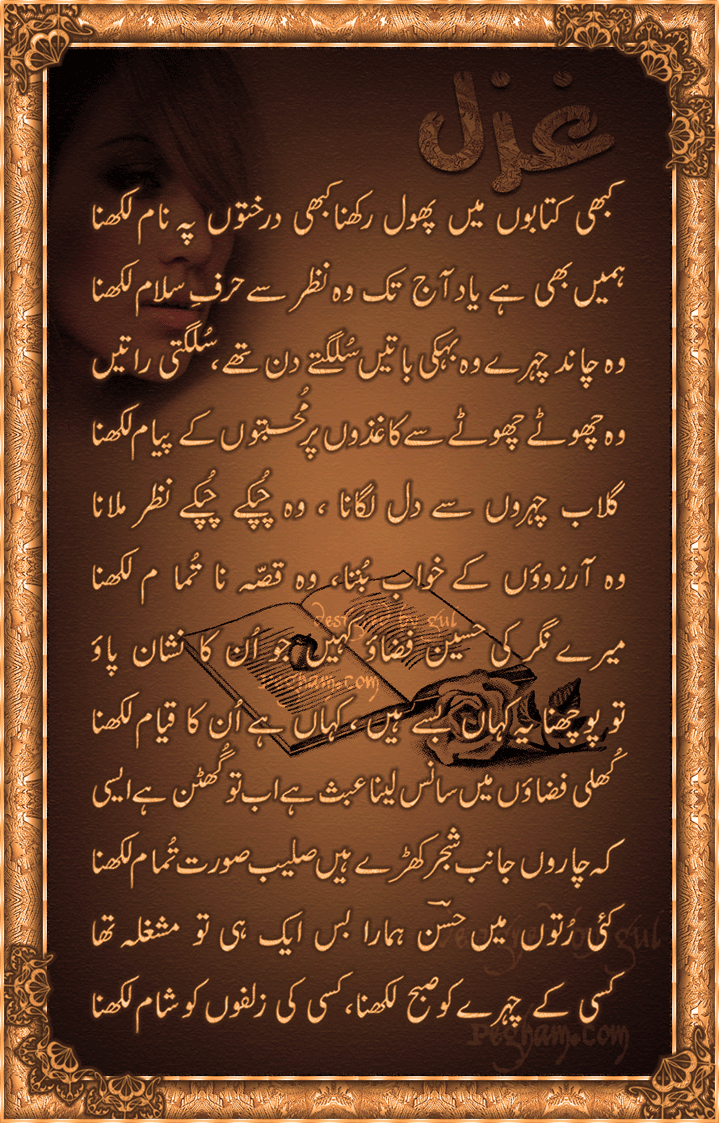 غزل
کبھی کتابوں میں پھول رکھنا کبھی درختوں پہ نام لکھنا
ہمیں بھی ہے یاد آج تک وہ نظر سے حرفِ سلام لکھنا
وہ چاند چہرے وہ بہکی باتیں سُلگتے دن تھے، سُلگتی راتیں
وہ چھوٹے چھوٹے سے کاغذوں پر مُحبتوں کے پیام لکھنا
گلاب چہروں سے دل لگانا ، وہ چُپکے چُپکے نظر ملانا
وہ آرزوؤں کے خواب بُننا، وہ قصّہ نا تُما م لکھنا
designed by gul
میرے نگر کی حسین فضاؤ کہیں جو اُن کا نشان پاؤ
Pegham.com
تو پوچھنا یہ کہاں بسے ہیں ، کہاں ہے اُن کا قیام لکھنا
کُھلی فضاؤں میں سانس لینا عبث ہے اب تو گُھٹن ہے ایسی
کہ چاروں جانب شجر کھڑے ہیں صلیب صورت تُمام لکھنا
کئی رُتوں میں حسؔن ہمارا بس ایک ہی تو مشغلہ تھا
designed by gul
کسی کے چہرے کو صبح لکھنا، کسی کی زلفوں کو شام لکھنا
Pegham.com